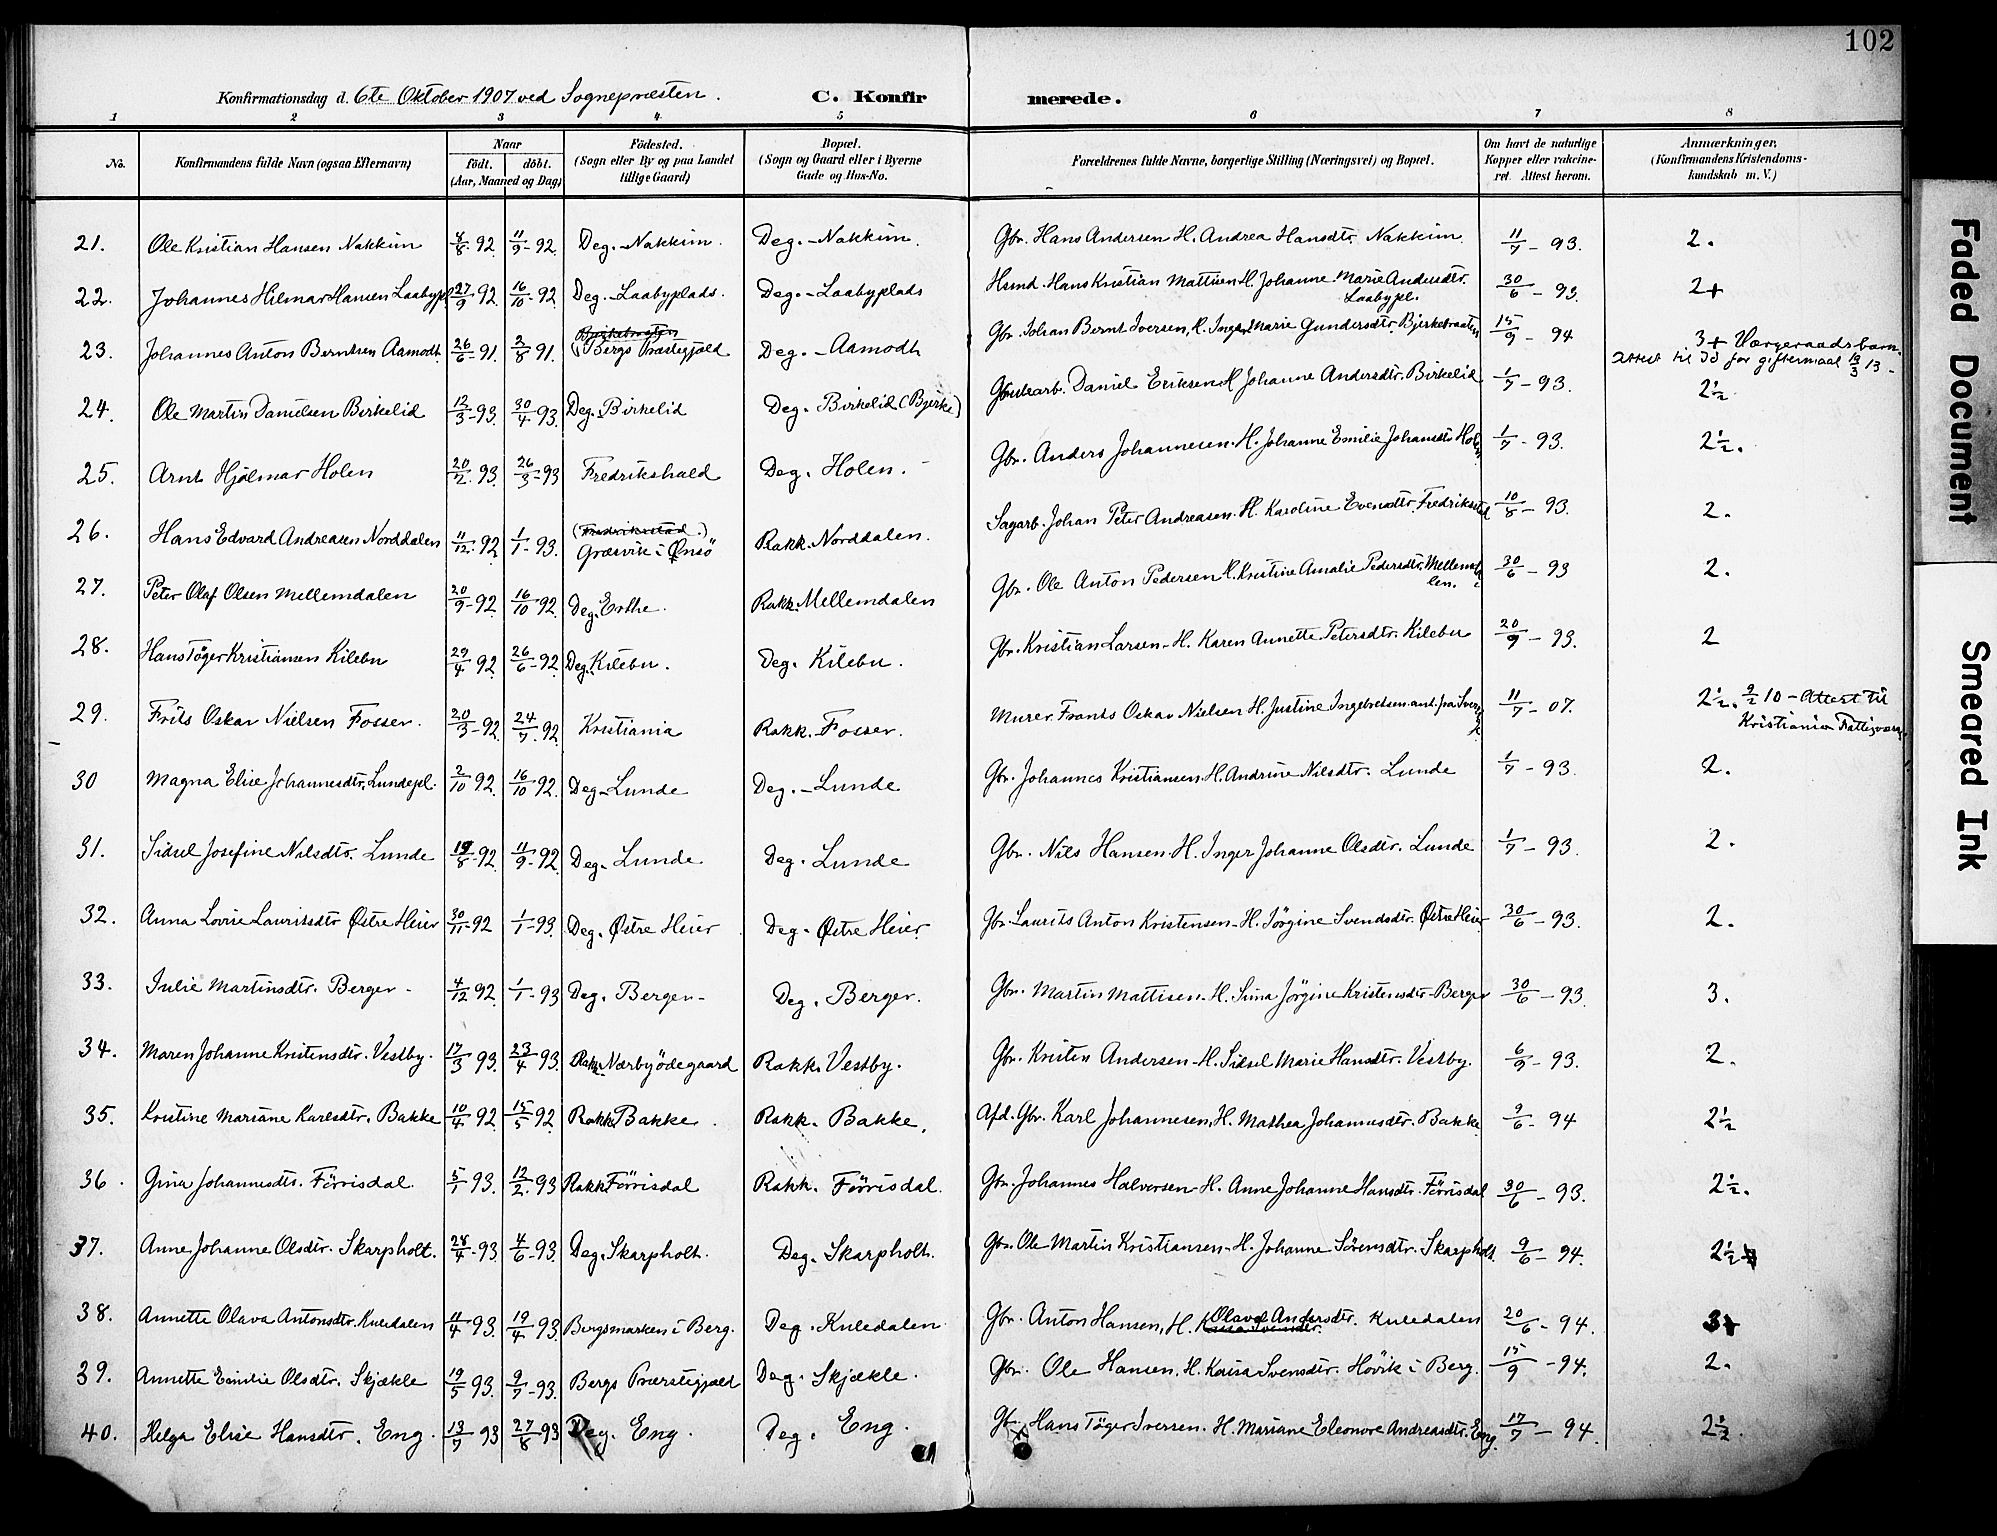 102
Konfirmationsdag d. 6te Oktober 1907 ved Sognepræsten. C. Konfir merede.
1 2 3 4 5 6 7 8
No. Konfirmandens fulde Navn (ogsaa Efternavn) Naar født. døbt. (Aar, Maaned og Dag) Fødested. (Sogn eller By og paa Landet tillige Gaard) Bopæl. (Sogn og Gaard eller i Byerne Gade og Hus-No. Forældrenes fulde Navne, borgerlige Stilling (Næringsvei) og Bopæl. Om havt de naturlige Kopper eller vakcineret. Attest herom. Anmærkninger, (Konfirmandens Kristendomskundskab m. V.)
21. Ole Kristian Hansen Nakkim 4/8-92 11/9-92. Deg.-Nakkim. Deg.-Nakkim. Gbr. Hans Andersen H. Andrea Hansdtr. Nakkim. 11/7-93. 2.
22. Johannes Hilmar Hansen Laabypl. 27/9 92. 16/10-92. Deg.-Laabyplads. Deg.-Laabyplads Hsmd. Hans Kristian Mattisen H. Johanne Marie Andersdtr. Laabypl. 30/6-93. 2+
23. Johannes Anton Berntsen Aamodt. 26/6-91. 2/8 91. Bjerkebraaten (Bergs Præstegjæld Deg.-Aamodt Gbr. Johan Bernt Iversen, H. Inger Marie Gundersdtr. Bjerkebraaten 15/9-94 3+ Værgeraadsbarn.
Attest til Id for giftermaal 19/3 13-
24. Ole Martin Danielsen Birkelid 12/3-93. 30/4-93. Deg. Birkelid Deg. Birkelid (Bjerke) Daniel Eriksen H. Johanne Andersdtr. Birkelid 1/7-93. 2½.
25. Arnt Hjalmar Holen 20/2-93. 26/3-93 Fredrikshald Deg. Holen.- Gbr. Anders Johannesen. H. Johanne Emilie Johansdtr. Holen. 1/7-93. 2½.
26. Hans Edvard Andreasen Norddalen 11/12-92. 1/1-93. (Fredrikstad.) Græsvik i Ønsö Rakk. Norddalen. Sagarb. Johan Peter Andreasen. H. Karoline Evensdtr. Fredrikstad 10/8-93. 2.
27. Peter Olaf Olsen Mellemdalen 20/9-92. 16/10 92. Deg. Erthe. Rakk. Mellemdalen Gbr. Ole Anton Pedersen H. Kristine Amalie Pedersdtr. Mellemdalen. 30/6-93 2.
28. Hans Töger Kristiansen Kilebu 29/4 92. 26/6-92. Deg. Kilebu. Deg. Kilebu. Gbr. Kristian Larsen-H. Karen Annette Petersdtr. Kilebu 20/9-93. 2
29. Frits Oskar Nielsen Fosser. 20/3-92. 24/7.92. Kristiania Rakk. Fosser. Murer Frants Oskar Nielsen H. Justine Ingebretsen 11/7-07. 2½. 9/2 10-Attest til Kristiania Fattigvæsen
30 Magna Elise Johannesdtr. Lundepl. 2/10 92. 16/10-92. Deg-Lunde Deg.-Lunde Gbr. Johannes Kristiansen H. Andrine Nilsdtr. Lunde 1/7-93. 2.
31. Sidsel Josefine Nilsdtr. Lunde 19/8-92. 11/9-92. Deg. Lunde Deg. Lunde Gbr. Nils Hansen. H. Inger Johanne Olsdtr. Lunde 1/7-93. 2.
32. Anna Lovise Lauritsdtr Østre Heier 30/11-92 1/1-93. Deg. Østre Heier Deg. Østre Heier. Gbr. Laurits Anton Kristensen-H. Jörgine Svendsdtr. Østre Heier 30/6-93. 2.
33. Julie Martinsdtr. Berger- 4/12 92. 1/1-93 Deg. Berger- Deg. Berger. Gbr. Martin Mattisen-H. Sina Jørgine Kristensdtr-Berger 30/6-93. 3.
34. Maren Johanne Kristensdtr. Vestby. 17/3 93. 23/4 93. Rakk. Nærbyödegaard Rakk. Vestby. Gbr. Kristen Andersen-H. Sidsel Marie Hansdtr. Vestby. 6/9-93. 2.
35. Kristine Mariane Karlsdtr. Bakke 10/4 92 15/5 92. Rakk. Bakke. Rakk. Bakke. Afd. Gbr. Karl Johannesen, H. Mathea Johannesdtr. Bakke 9/6-94 2½
36. Gina Johannesdtr. Förrisdal. 5/1 93. 12/2-93 Rakk. Förrisdal Rakk. Förrisdal. Gbr. Johannes Halvorsen-H. Anne Johanne Hansdtr. Förrisdal 30/6-93. 2½.
37. Anne Johanne Olsdtr. Skarpholt. 28/4-93. 4/6-93. Deg. Skarpholt. Deg. Skarpholt. Gbr. Ole Martin Kristiansen-H. Johanne Sörensdtr. Skarpholt. 9/6-94. 2½
38. Annette Olava Antonsdtr. Kuledalen 11/4 93. 19/4 93. Bergsmarken i Berg. Deg. Kuledalen Gbr. Anton Hansen, H. Olava Andersdtr. Kuledalen 20/6-94. 3+
39. Annette Emilie Olsdtr. Skjækle 19/5 93. 9/7-93. Bergs Præstegjæld Deg. Skjækle. Gbr. Ole Hansen, H. Kaisa Svensdtr. Hövik i Berg. 15/9-94. 2.
40. Helga Elise Hansdtr. Eng. 13/7 93 27/8 93 Deg. Eng. Deg. Eng. Gbr. Hans Töger Iversen. H. Mariane Eleonore Andreasdtr. Eng. 17/7-94. 2½.
Faded Document
Smeared Ink